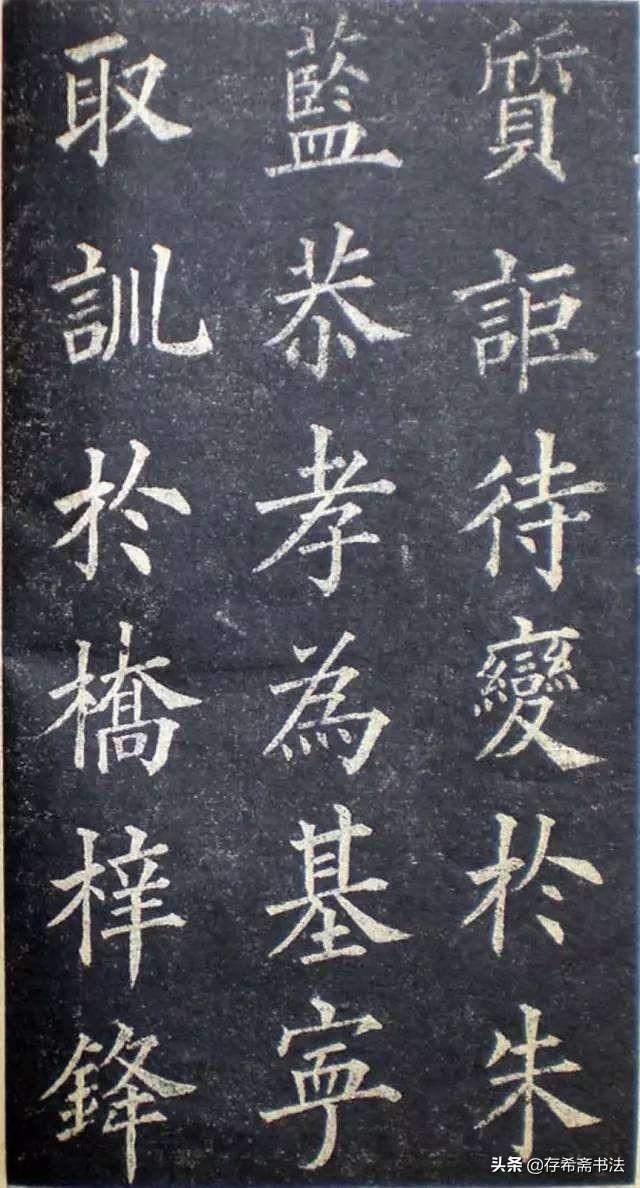 質詎待變於朱
藍恭孝為基寧
取訓於橋梓鋒
头条@存希斋书法